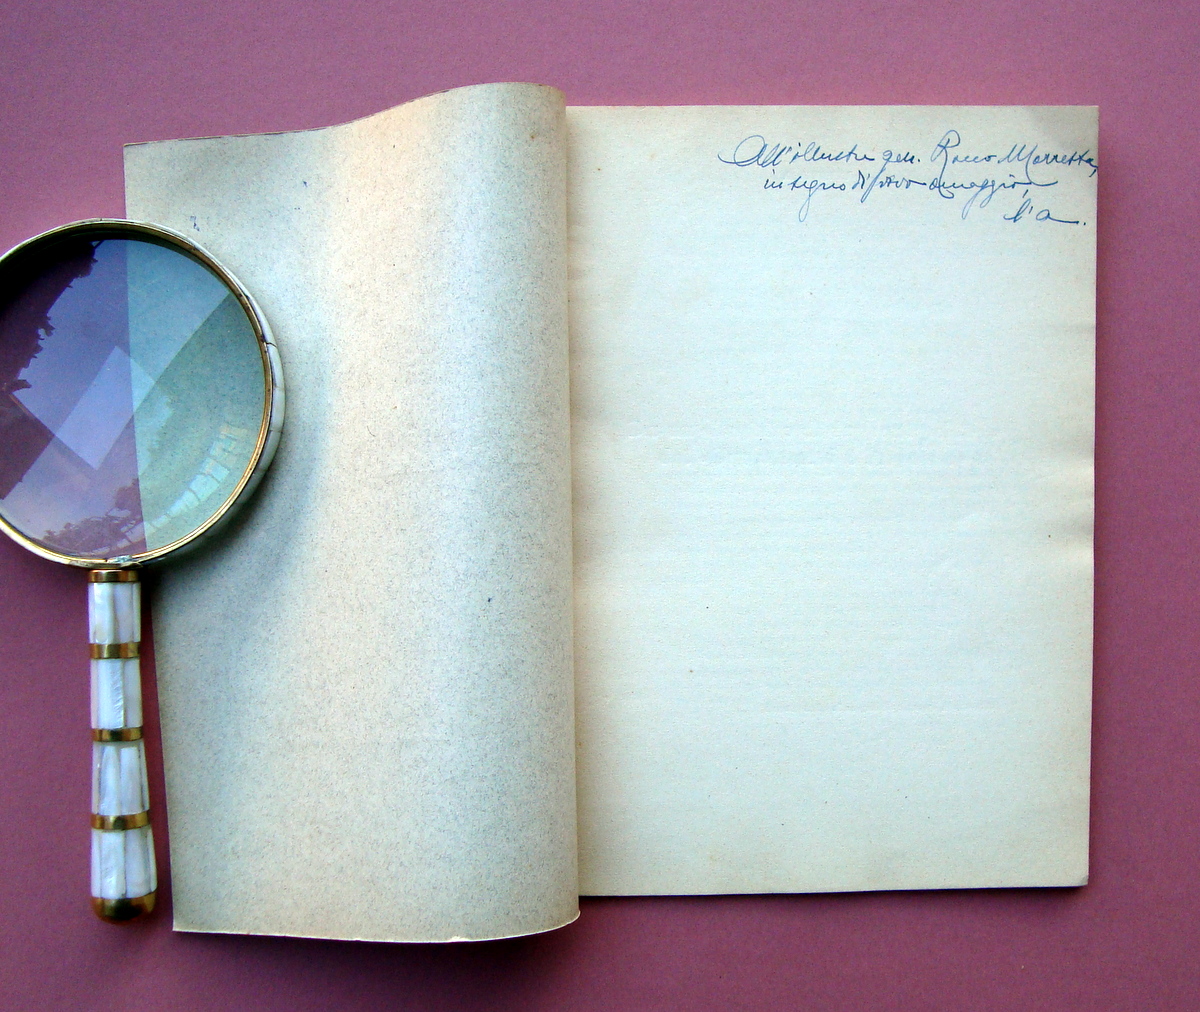 All'illustre gen. Rocco Morretta,
in segno di vivo omaggio,
l'a.